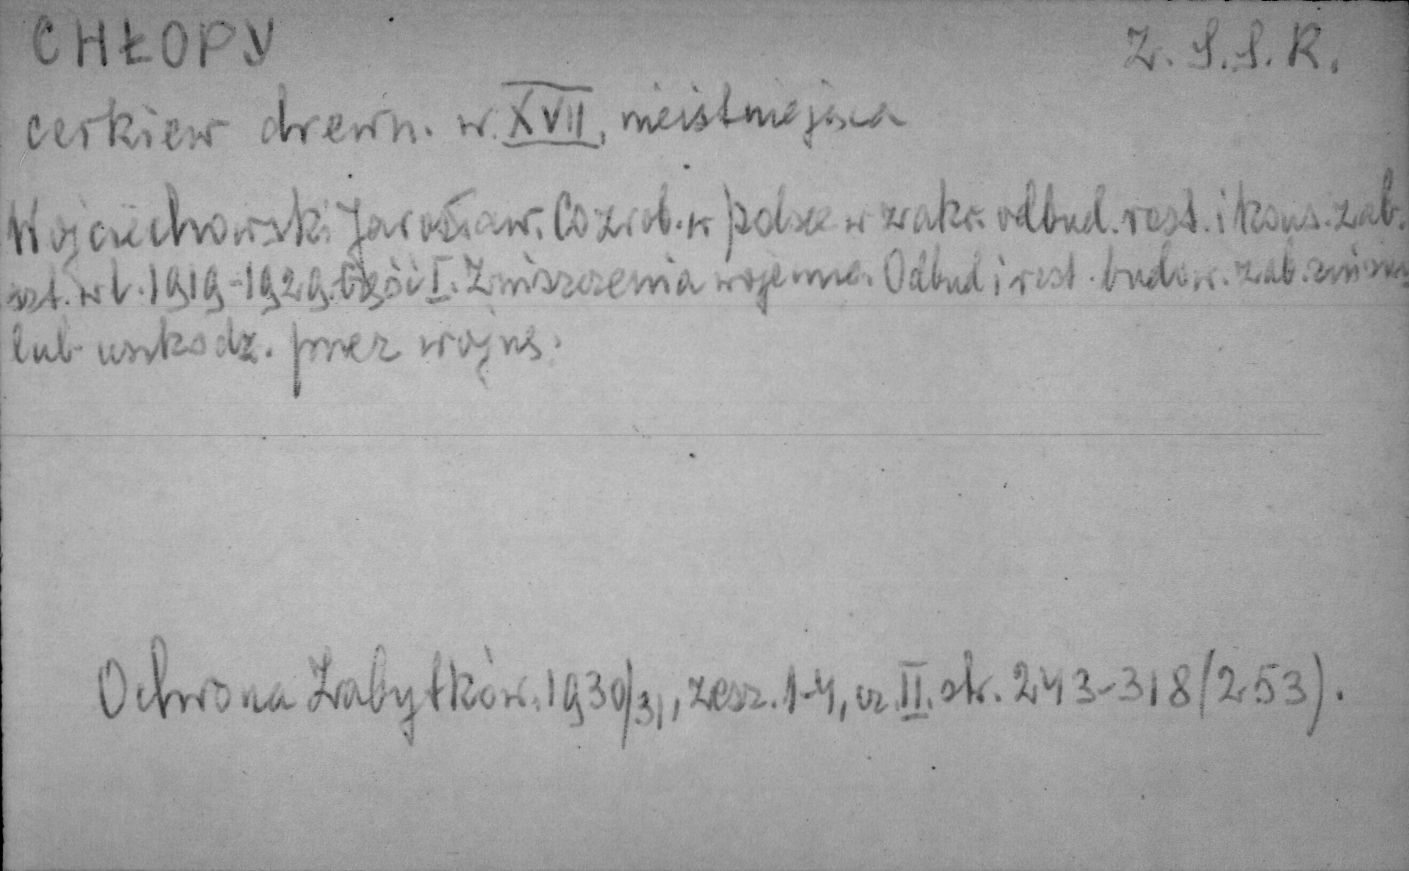 CHŁOPY Z.S.S.R.
cerkiew drewn. w. XVII, nieistniejąca
Wojciechowski Jarosław. Co zrob. w Polsce w zakr. odbud. rest. i kons. zab.
szt. w l. 1919-1929. Część I. Zniszczenia wojenne. Odbud i rest. budow. zab. zniszcz
lub uszkodz. przez wojnę.
Ochrona Zabytków. 1930/31, zesz. 1-4, cz. II. str. 243-318 (253).